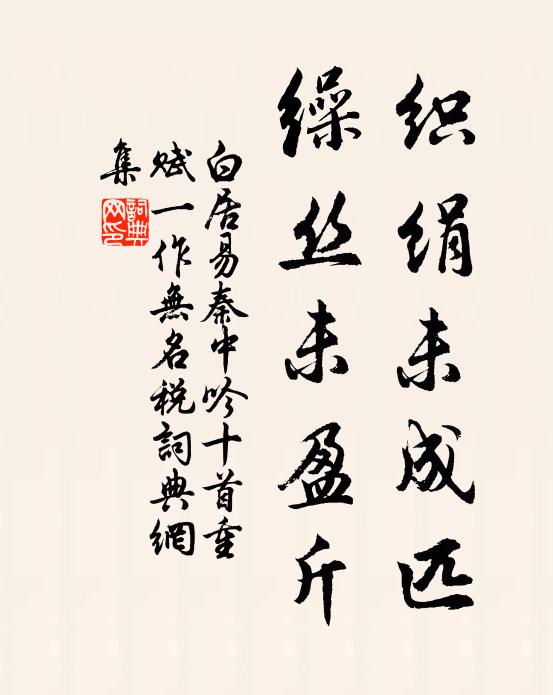 织绢未成匹
缲丝未盈斤
白居易秦中吟十首重
赋一作無名税詞典網
集
詞典
网印